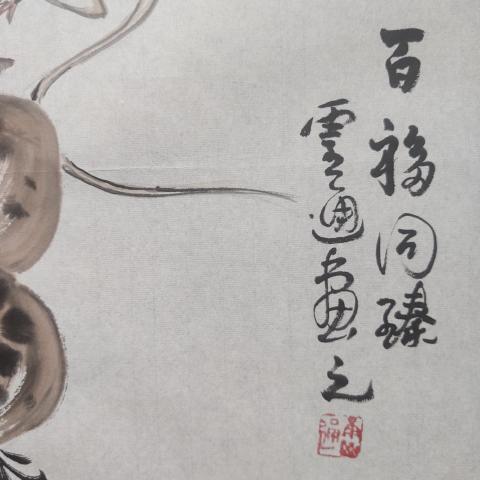 百福同臻
雲迪畫之